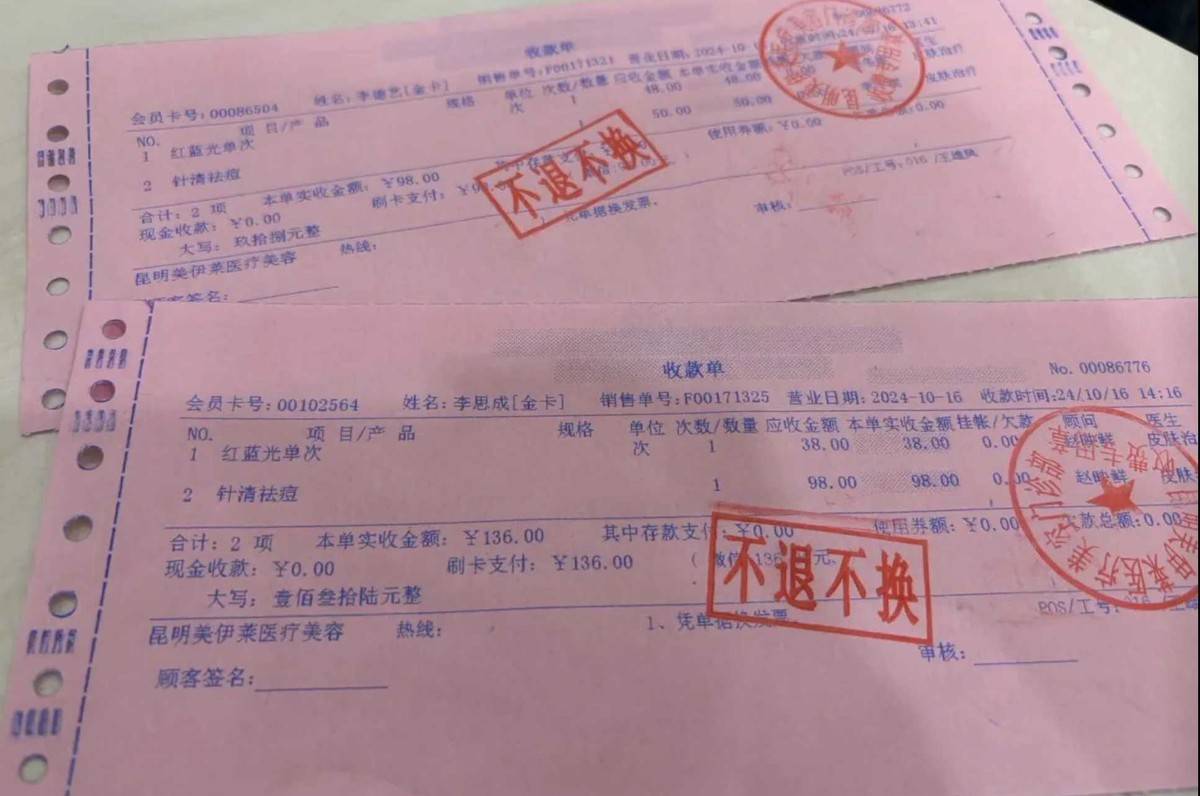 收款单
No. 00086772
会员卡号：00086504 姓名：李德艺[金卡] 销售单号：F00171321 营业日期：2024-10-1 收款时间:24/10/16 13:41
NO. 项 目/产 品 规格 单位 次数/数量 应收金额 本单实收金额
1 红蓝光单次 次 1 48.00 48.00 皮肤治疗
2 针清祛痘 1 50.00 50.00 皮肤治疗
合计：2 项 本单实收金额：￥98.00 使用券额：￥0.00
现金收款：￥0.00 刷卡支付：
大写：玖拾捌元整
POS/工号：016
昆明美伊莱医疗美容 热线： 审核：
顾客签名：
不退不换
收款单
No. 00086776
会员卡号：00102564 姓名：李思成[金卡] 销售单号：F00171325 营业日期：2024-10-16 收款时间:24/10/16 14:16
NO. 项 目/产 品 规格 单位 次数/数量 应收金额 本单实收金额 挂帐/欠款 顾问 医生
1 红蓝光单次 次 1 38.00 38.00 0.00 赵映鲜 皮肤治
2 针清祛痘 1 98.00 98.00 0.00 赵映鲜 皮肤
合计：2 项 本单实收金额：￥136.00 其中存款支付：￥0.00 使用券额：￥0.00 欠款总额：0.00
现金收款：￥0.00 刷卡支付：￥136.00 （ 微信：136 元、
大写：壹佰叁拾陆元整
POS/工号：016
昆明美伊莱医疗美容 热线： 1、凭单据换发票。
顾客签名： 审核：
不退不换